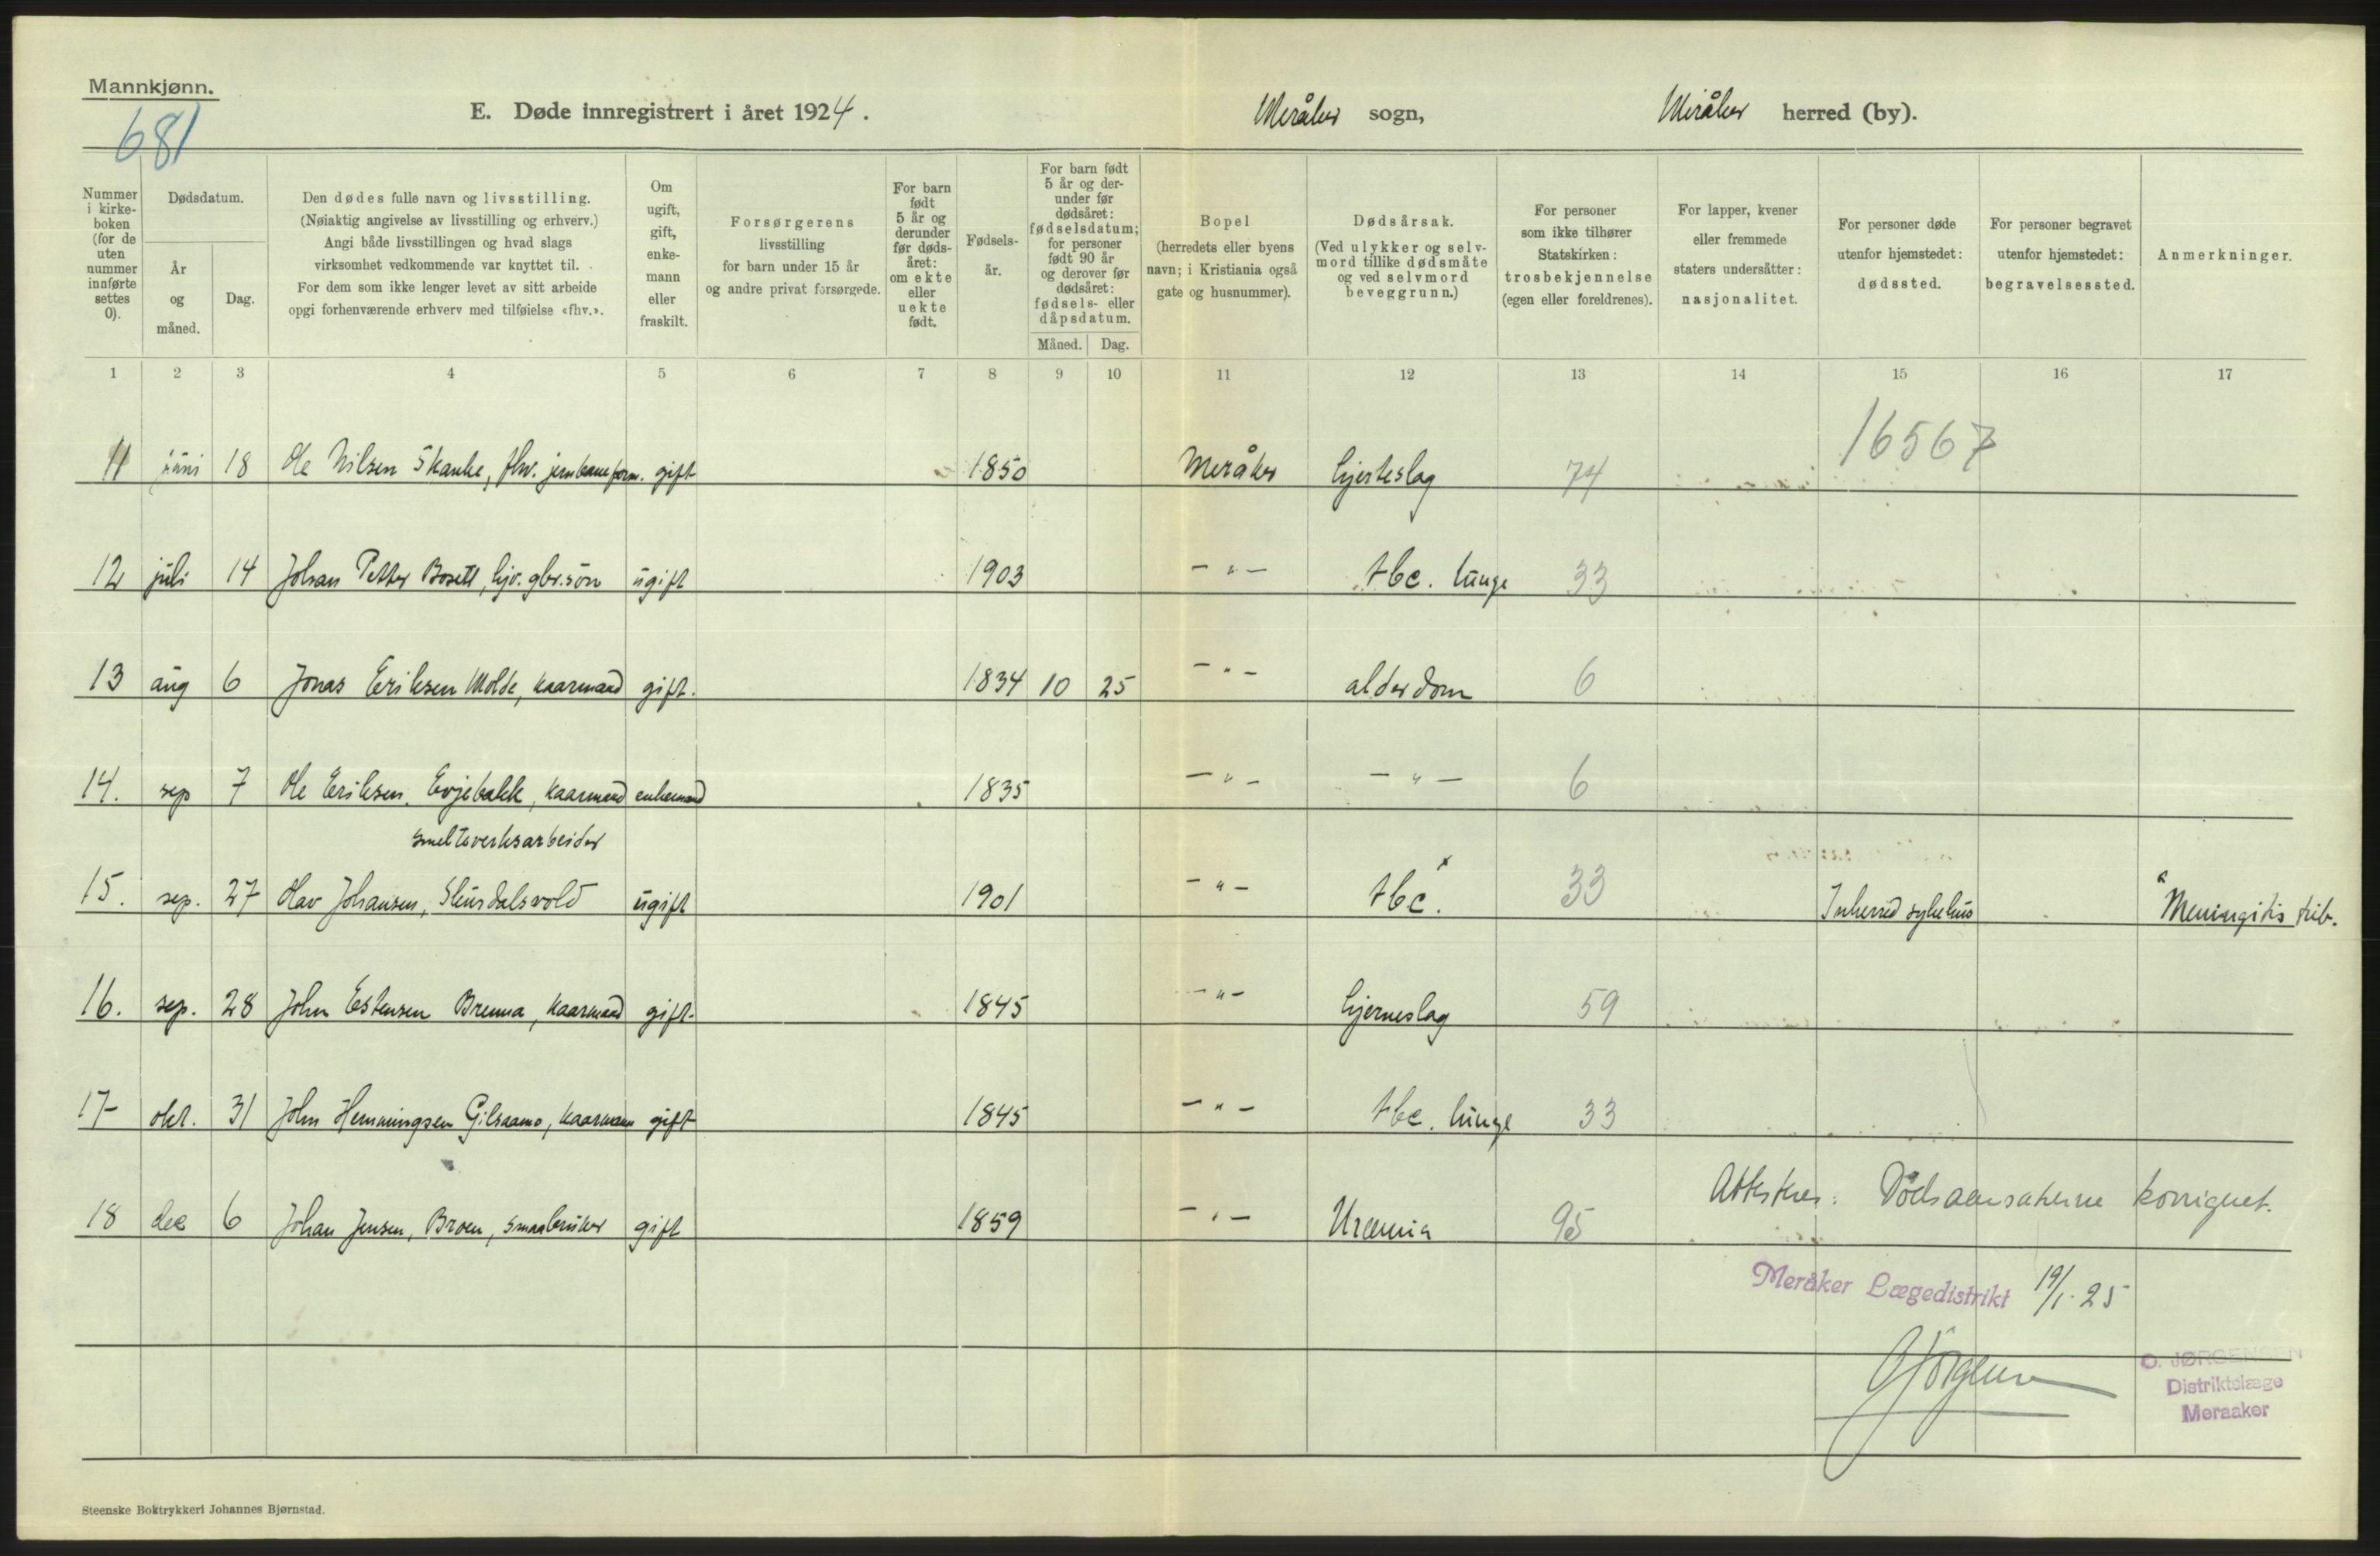 Mannkjønn.
681
E. Døde innregistrert i året 1924.
Meråker sogn,
Meråker herred (by).
Nummer i kirkeboken (for de uten nummer innførte settes 0).
Dødsdatum.
År og måned.
Dag.
Den dødes fulle navn og livsstilling.
(Nøiaktig angivelse av livsstilling og erhverv.)
Angi både livsstillingen og hvad slags
virksomhet vedkommende var knyttet til.
For dem som ikke lenger levet av sitt arbeide
opgi forhenværende erhverv med tilføielse «fhv.».
Om ugift, gift, enkemann eller fraskilt.
Forsørgerens
livsstilling
for barn under 15 år
og andre privat forsørgede.
For barn født 5 år og derunder før dødsåret: om ekte eller uekte født.
Fødselsår.
For barn født 5 år og derunder før dødsåret: fødselsdatum; for personer født 90 år og derover før dødsåret: fødsels- eller dåpsdatum.
Måned. Dag.
Bopel
(herredets eller byens
navn; i Kristiania også
gate og husnummer).
Dødsårsak.
(Ved ulykker og selvmord tillike dødsmåte
og ved selvmord
beveggrunn.)
For personer
som ikke tilhører
Statskirken:
trosbekjennelse
(egen eller foreldrenes).
For lapper, kvener
eller fremmede
staters undersåtter:
nasjonalitet.
For personer døde
utenfor hjemstedet:
dødssted.
For personer begravet
utenfor hjemstedet:
begravelsessted.
Anmerkninger.
1 2 3 4 5 6 7 8 9 10 11 12 13 14 15 16 17
16567
11 juni 18 Ole Nilsen Skanke, fhv. jernbaneform. gift 1850 Meråker hjerteslag 74
12 juli 14 Johan Petter Bosett, hjv. gbr.søn ugift 1903 - " - tbc. lunge 33
13 aug 6 Jonas Eriksen Molde, kaarmand gift. 1834 10 25 - " - alderdom 6
14. sep 7 Ole Eriksen Evjebakk, kaarmand enkemand 1835 - " - - " - 6
smelteverksarbeider
15. sep. 27 Olav Johansen, Stursdalsvold ugift 1901 - " - tbc. x 33 Inherred sykehus x Meningitis tub.
16. sep. 28 John Estensen Brenna, kaarmand gift. 1845 - " - hjerneslag 59
17 okt. 31 John Hemmingsen Gilsaamo, kaarmann gift 1845 - " - tbc. lunge 33
18 dec 6 Johan Jensen, Broen, smaabruker gift 1859 - " - Uræmia 95
Attesteres: Dødsaarsakerne korrigert.
Meråker Lægedistrikt 19/1-25
OJørgensen
O. JØRGENSEN
Distriktslæge
Meraaker
Steenske Boktrykkeri Johannes Bjørnstad.